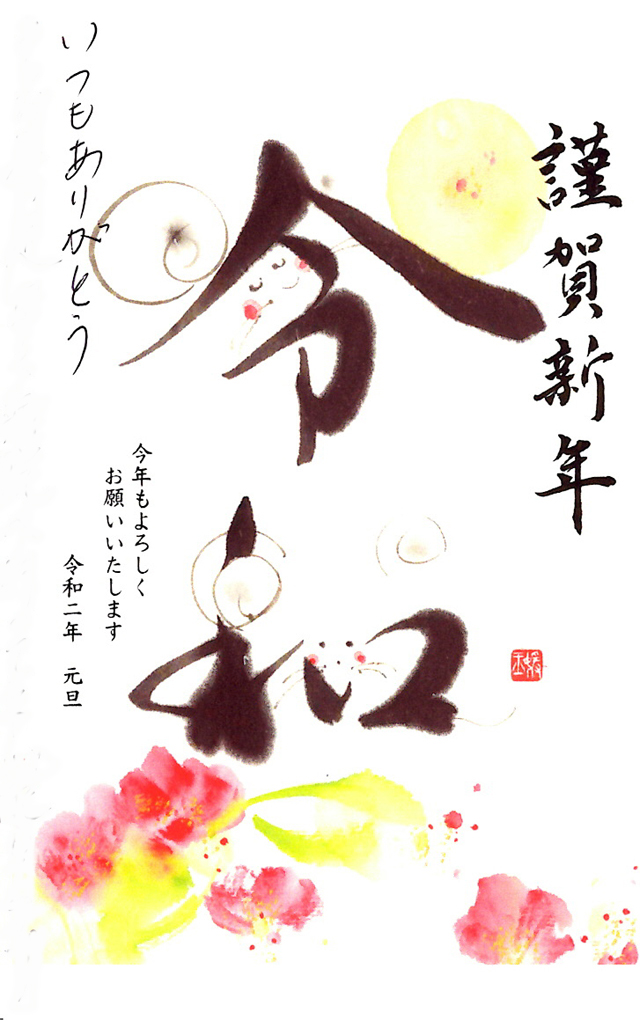 謹賀新年
令和
今年もよろしく
お願いいたします
令和二年　元旦
いつもありがとう